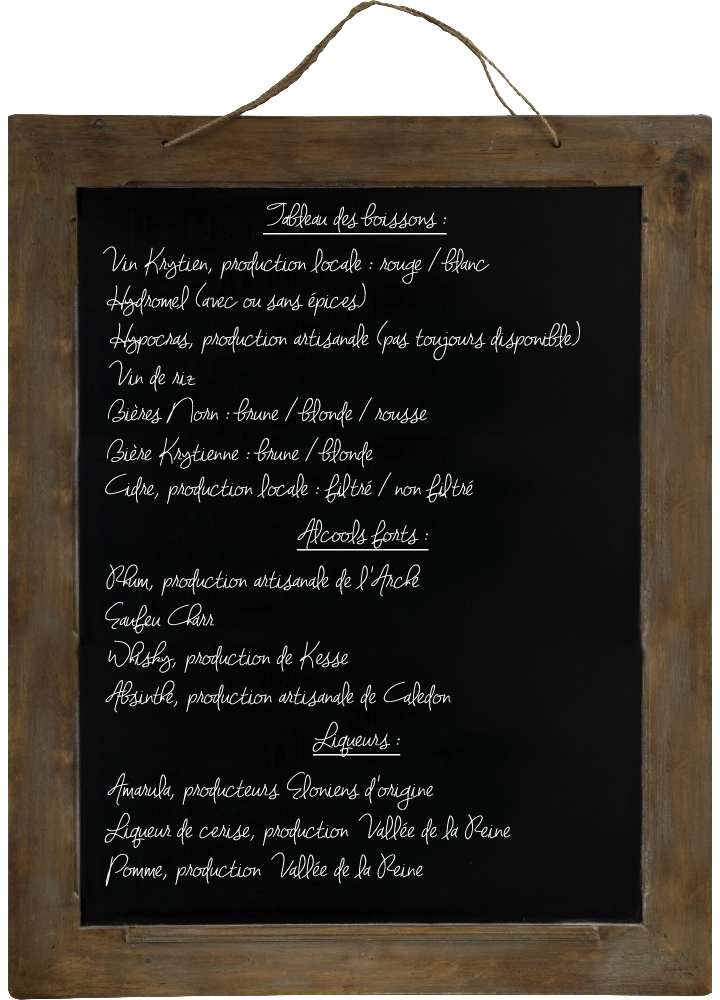 Tableau des boissons :
Vin Krytien, production locale : rouge / blanc
Hydromel (avec ou sans épices)
Hypocras, production artisanale (pas toujours disponible)
Vin de riz
Bières Norn : brune / blonde / rousse
Bière Krytienne : brune / blonde
Cidre, production locale : filtré / non filtré
Alcools forts :
Rhum, production artisanale de l'Arche
Eaufeu Charr
Whisky, production de Kesse
Absinthe, production artisanale de Caledon
Liqueurs :
Amarula, producteurs Eloniens d'origine
Liqueur de cerise, production Vallée de la Reine
Pomme, production Vallée de la Reine